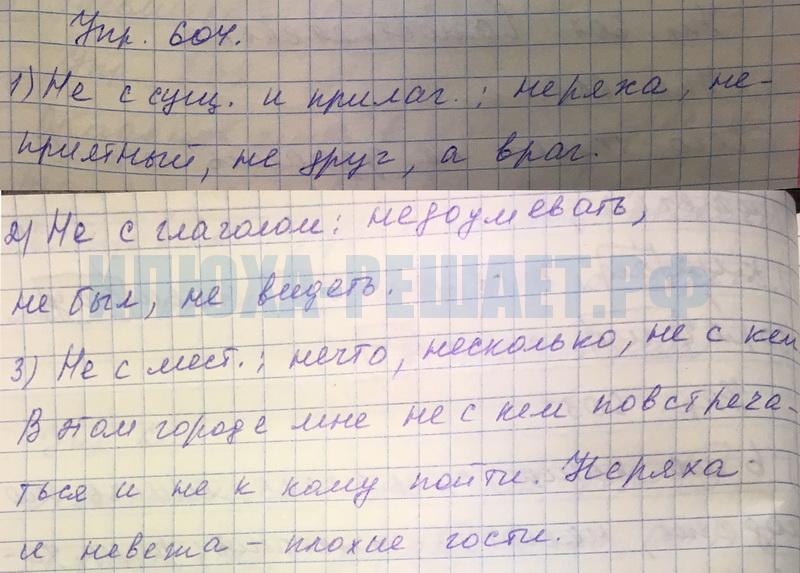 Упр. 604.
1) Не с сущ. и прилаг.: неряха, не-
приятный, не друг, а враг.
2) Не с глаголом: недоумевать,
ИЛЮХА-РЕШАЕТ.РФ
не был, не видеть.
3) Не с мест.: нечто, несколько, не с кем
В этом городе мне не с кем повстреча-
ться и не к кому пойти. Неряха
и невежа – плохие гости.